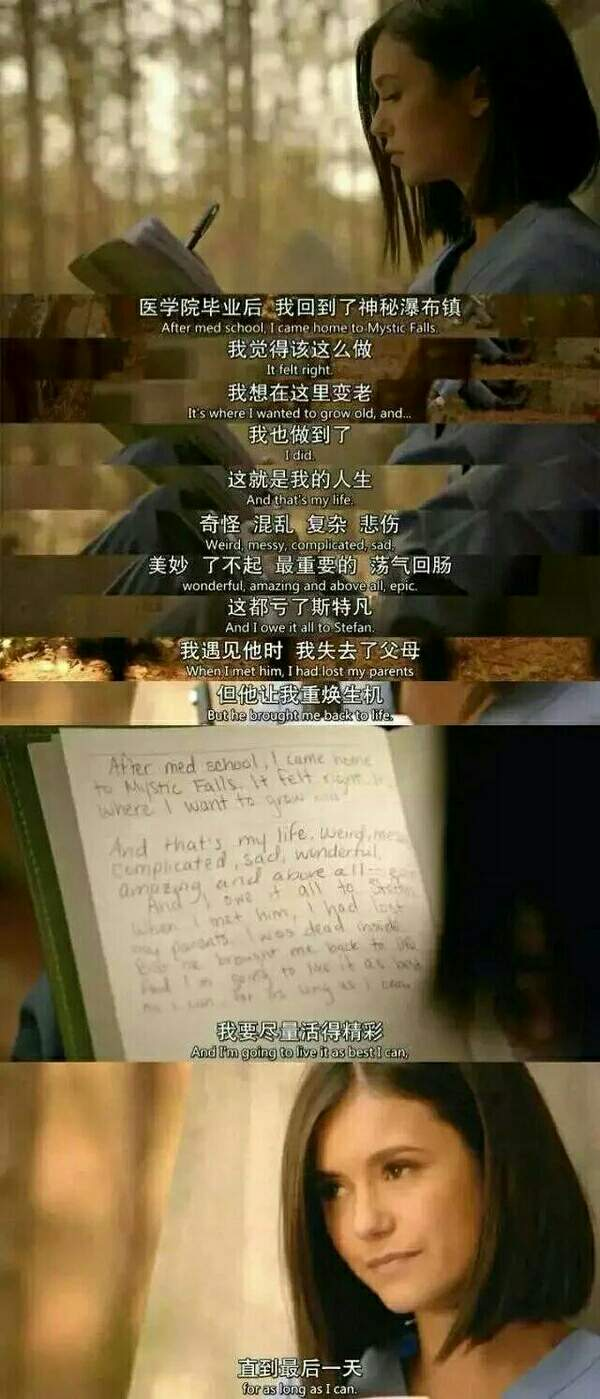 医学院毕业后 我回到了神秘瀑布镇
After med school, I came home to Mystic Falls.
我觉得该这么做
It felt right.
我想在这里变老
It's where I wanted to grow old, and...
我也做到了
I did.
这就是我的人生
And that's my life.
奇怪 混乱 复杂 悲伤
Weird, messy, complicated, sad,
美妙 了不起 最重要的 荡气回肠
wonderful, amazing and above all, epic.
这都亏了斯特凡
And I owe it all to Stefan.
我遇见他时 我失去了父母
When I met him, I had lost my parents
但他让我重焕生机
But he brought me back to life.
After med school, I came home
to Mystic Falls. It felt right.
where I want to grow
And that's my life. Weird,
complicated, sad, wonderful,
amazing and above all
And I owe it all to
When I met him, I had lost
my parents. I was dead inside
But he brought me back to life
And I'm going to live it as best
as long as I can
我要尽量活得精彩
And I'm going to live it as best I can,
直到最后一天
for as long as I can.